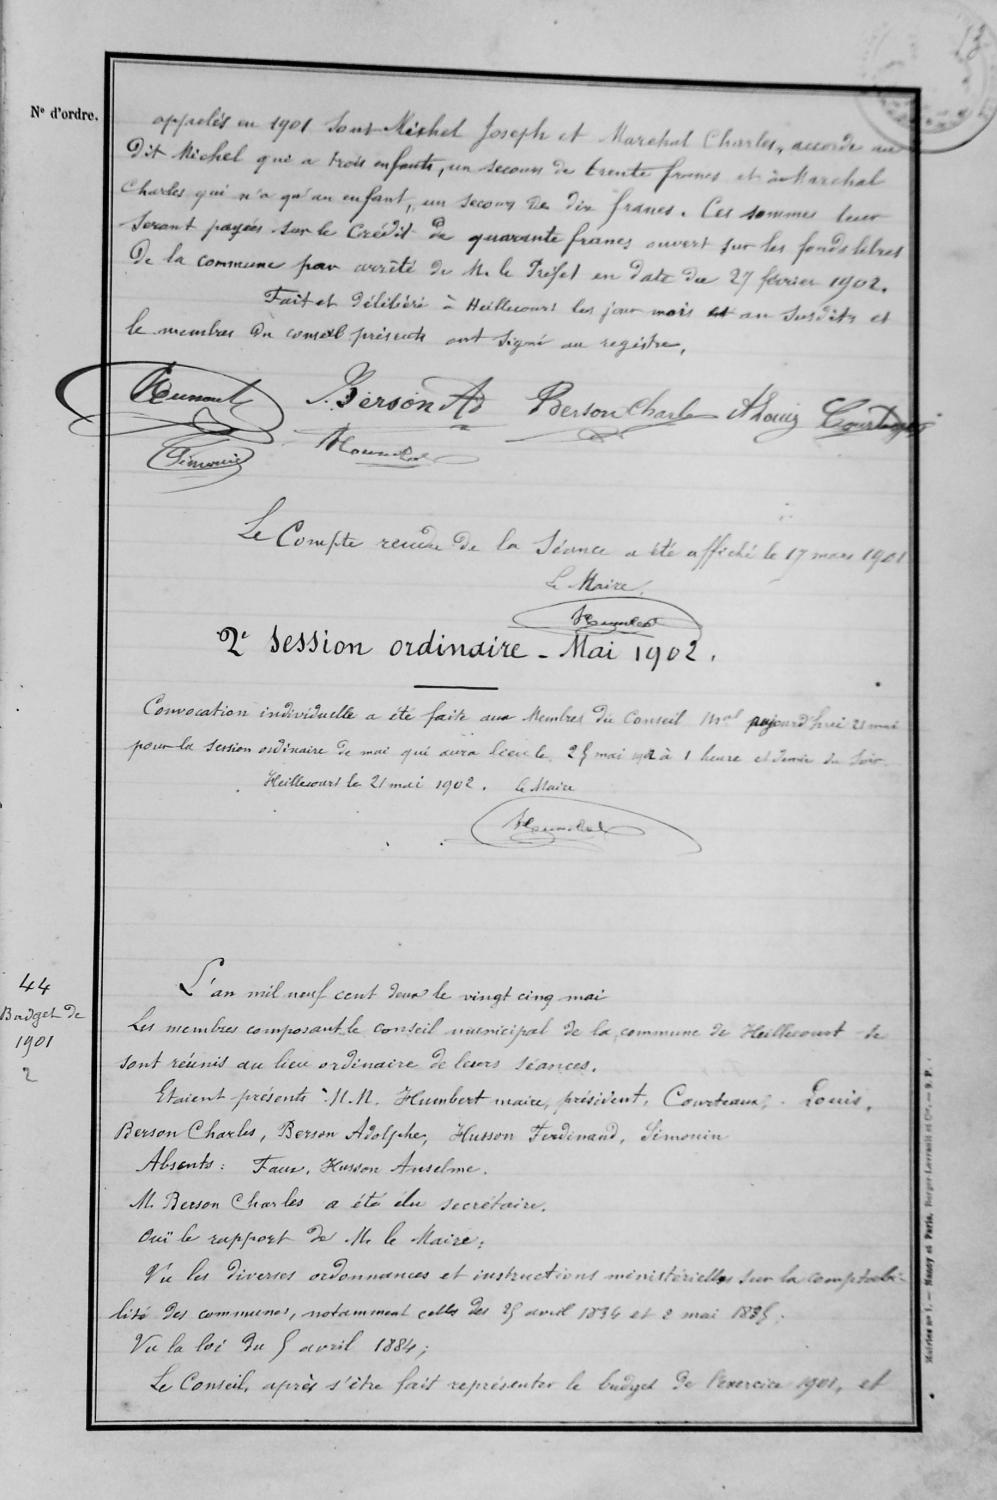 13
Nº d'ordre.
appelés en 1901 sont Michel Joseph et Marchal Charles, accorde au
dit Michel qui a trois enfants, un secours de trente francs et à Marchal
Charles qui n'a qu'un enfant, un secours de dix francs. Ces sommes leur
seront payées sur le crédit de quarante francs ouvert sur les fonds libres
de la commune par arrêté de M. le Préfet en date du 27 février 1902.
Fait et délibéré à Heillecourt les jour mois et an susdits et
le membres du conseil présents ont signé au registre.
J. Berson Ad Berson Charles A Louis Courteaux
Simonin Humbert
Le Compte rendu de la Séance a été affiché le 17 mars 1901
Le Maire,
Humbert
2e Session ordinaire - Mai 1902.
Convocation individuelle a été faite aux Membres du Conseil Mal aujourd'hui 21 mai
pour la session ordinaire de mai qui aura lieu le 25 mai 1902 à 1 heure et demie du soir
Heillecourt le 21 mai 1902. le Maire
Humbert
44
Budget de
1901
2
L'an mil neuf cent deux le vingt cinq mai
Les membres composant le conseil municipal de la commune de Heillecourt se
sont réunis au lieu ordinaire de leurs séances.
Etaient présents : M.M. Humbert maire, président, Courteaux, Louis,
Berson Charles, Berson Adolphe, Husson Ferdinand, Simonin
Absents : Faux, Husson Anselme.
M. Berson Charles a été élu secrétaire.
Ouï le rapport de M. le Maire ;
Vu les diverses ordonnances et instructions ministérielles sur la comptabi-
lité des communes, notamment celles des 25 avril 1834 et 2 mai 1835 ;
Vu la loi du 5 avril 1884 ;
Le Conseil, après s'être fait représenter le budget de l'exercice 1901, et
Mairies nº 1. — Nancy et Paris, Berger-Levrault et Cie. — 9 P.